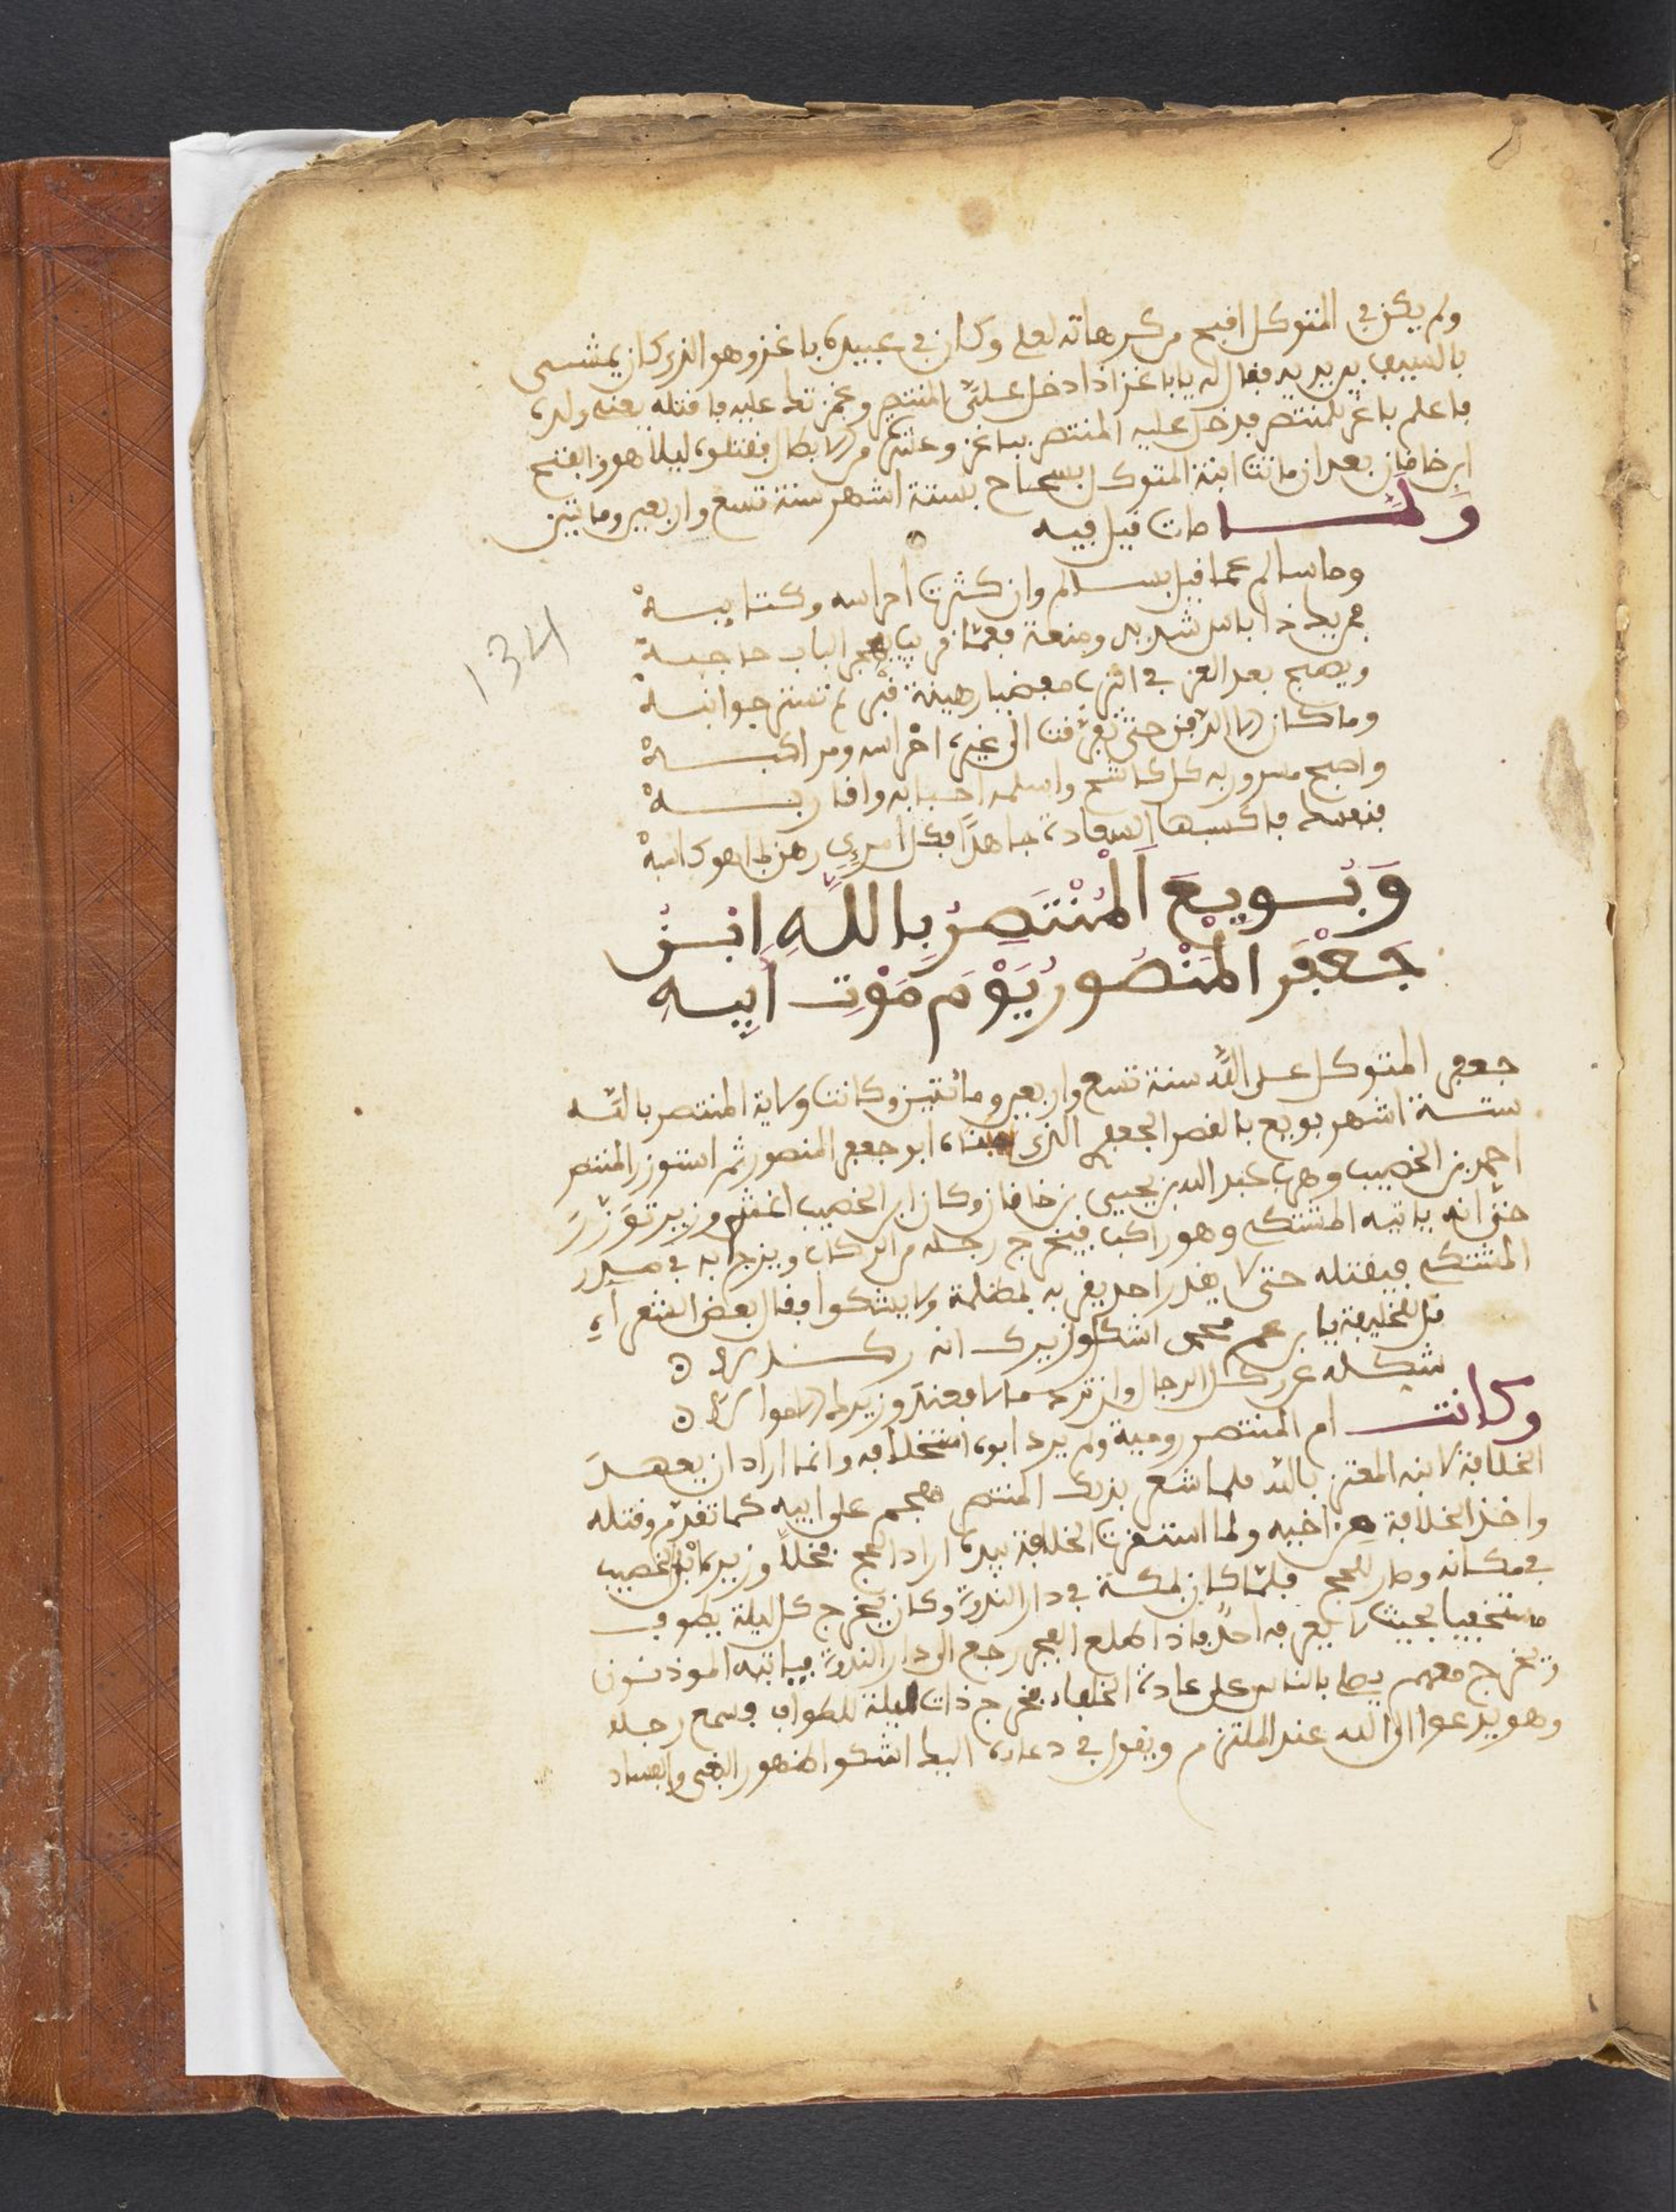 ولم يكن في المتوكل اقبح من كراهاته لعلي وكان في عبيده باغز وهو الذي كان يمشي
بالسيف بين يديه فقال له يا باغز اذا دخل علي المنتصر وغمزتك عليه فاقتله يعني ولده
فاعلم باغز المنتصر فدخل عليه المنتصر بباغز وعشرة من الابطال فقتلوه ليلا هو والفتح
ابن خاقان بعد ان ماتت ابنة المتوكل بسحاح بستة اشهر سنة تسع واربعين ومائتين
ولما مات قيل فيه
وما سالم عما قليل بسالم وان كثرت احراسه وكتايبه
فمن يك ذا باس شديد ومنعة فعما قريب يهجر الباب حاجبه
ويصبح بعد العز في الترب مغضبا رهينة قبر لم تستر جوانبه
وما كان الا الدفن حتى تفرقت الى غيره احراسه ومراكبه
واصبح مسرور به كل كاشح واسلمه احبابه واقاربه
فنفسك فاكسبها السعادة جاهدا فكل امرئ رهن لما هو كاسبه
وَبُويِعَ الْمُنْتَصِرُ بِاللهِ ابْنُ
جَعْفَر المَنْصُور يَوْمَ مَوْتِ اَبِيهِ
جعفر المتوكل على الله سنة تسع واربعين ومائتين وكانت ولاية المنتصر بالله
ستة اشهر بويع بالقصر الجعفري الذي بناه ابو جعفر المنصور ثم استوزر المنتصر
احمد بن الخصيب وهرب عبد الله بن يحيى بن خاقان وكان ابن الخصيب اغشم وزير توزر
حتى انه ياتيه المشتكي وهو راكب فيخرج رجله من الركاب ويزج به في صدر
المشتكي فيقتله حتى لا يقدر احد يقربه لمظلمة ولا يشكوا فقال بعض الشعراء
قل للخليفة يا بن عم محمد اشكل وزيرك انه ركال
شكله عن ركل الرجال وان ترد مالا فعند وزيرك الاموال
وكانت ام المنتصر رومية ولم يرد ابوه استخلافه وانما اراد ان يعهد
الخلافة لابنه المعتز بالله فلما شعر بذلك المنتصر هجم على ابيه كما تقدم وقتله
واخذ الخلافة من اخيه ولما استقرت الخلافة بيده اراد الحج فخلا وزيره ابن الخصيب
في مكانه وصار للحج فلما كان بمكة في دار الندوة وكان يخرج كل ليلة يطوف
مستخفيا بحيث لا يعرفه احد فاذا طلع الفجر رجع الى دار الندوة فياتيه الموذنون
ويخرج معهم يصلي بالناس على عادة الخلفاء فخرج ذات ليلة للطواف فسمع رجلا
وهو يدعوا الى الله عند الملتزم ويقول في دعاه اليك اشكوا ظهور البغي والفساد
134